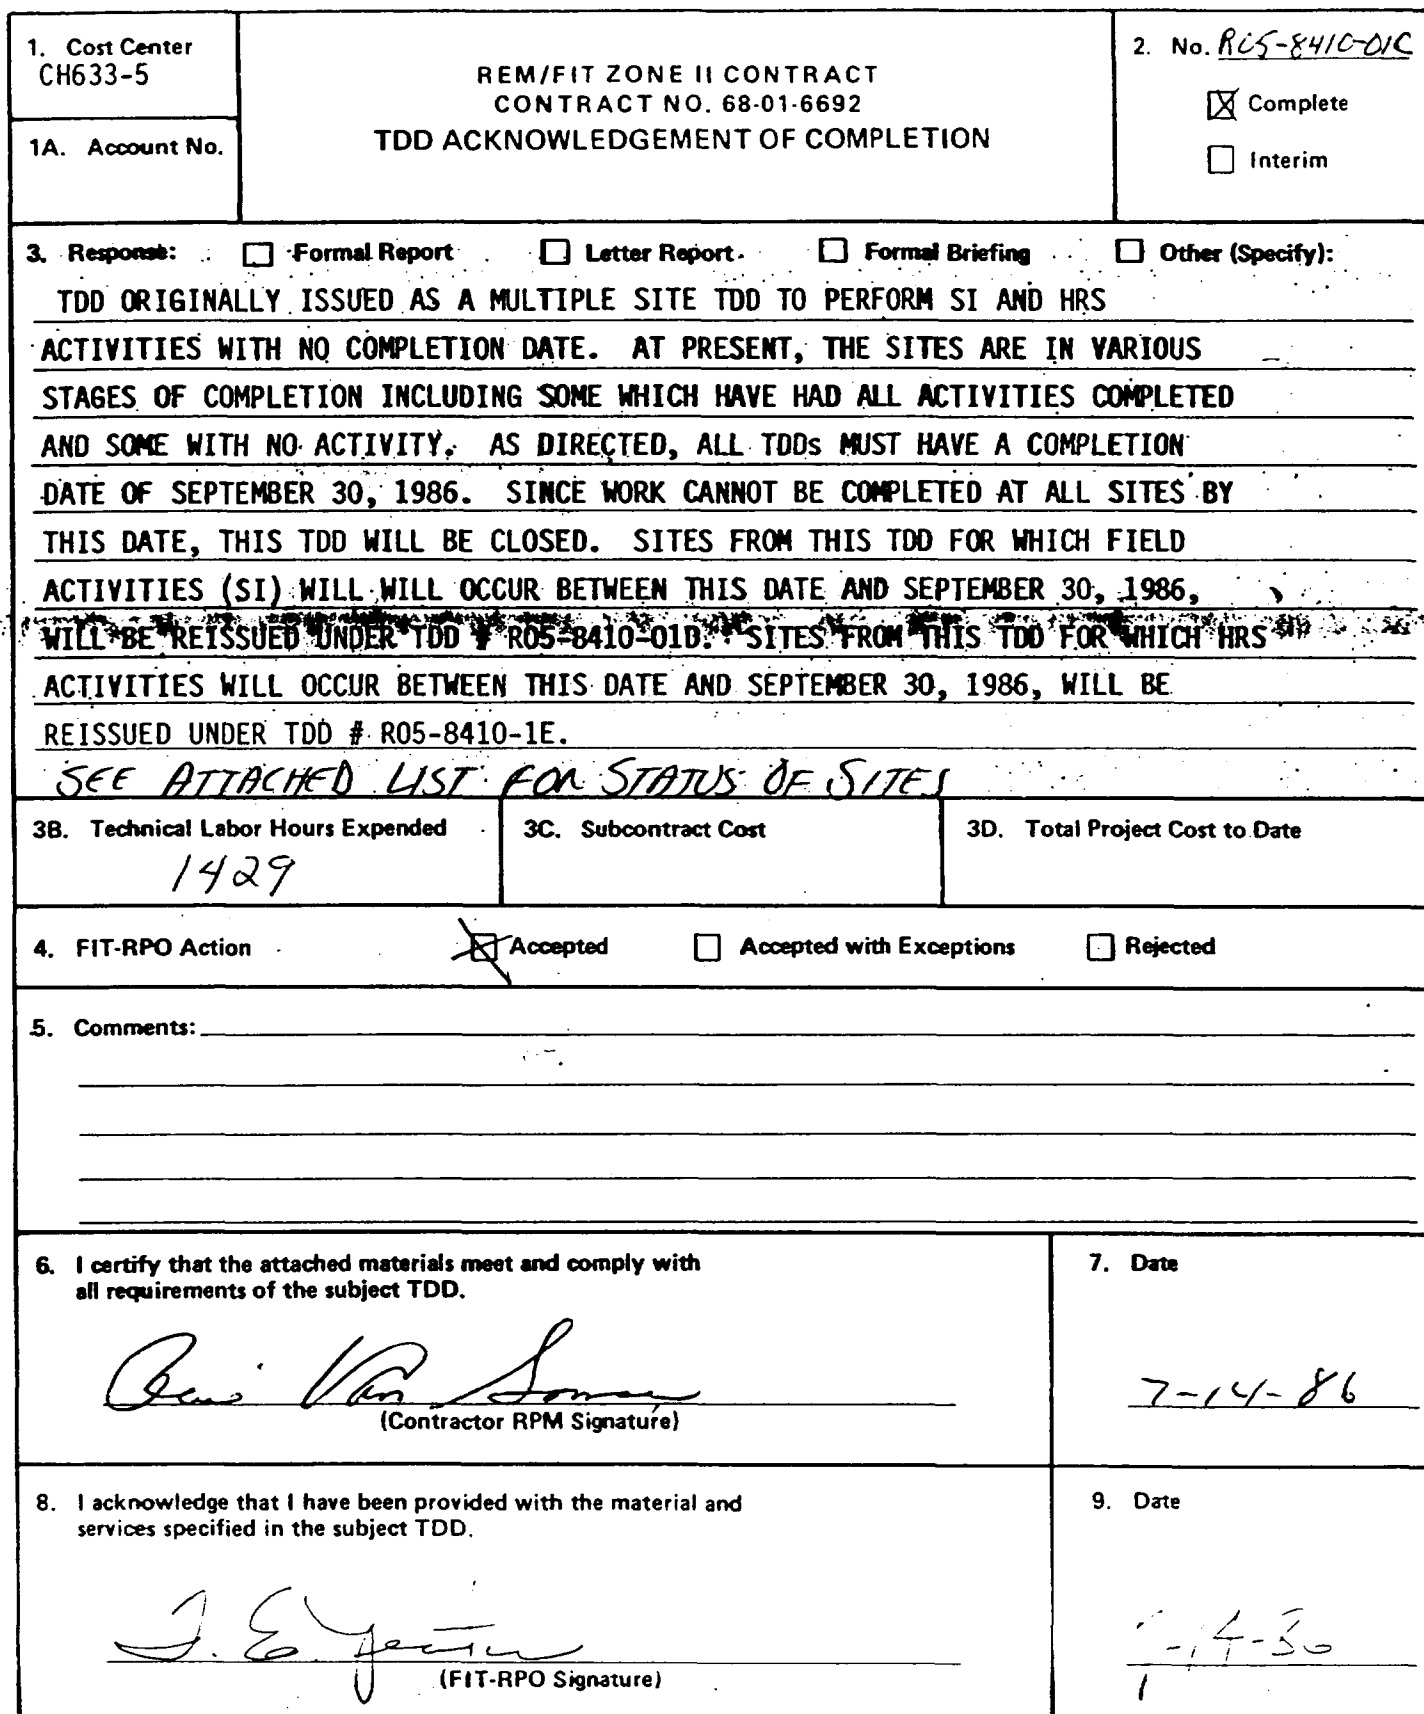 1. Cost Center
CH633-5
1A. Account No.
REM/FIT ZONE II CONTRACT
CONTRACT NO. 68-01-6692
TDD ACKNOWLEDGEMENT OF COMPLETION
2. No. R05-8410-01C
Complete
Interim
3. Response: Formal Report Letter Report Formal Briefing Other (Specify):
TDD ORIGINALLY ISSUED AS A MULTIPLE SITE TDD TO PERFORM SI AND HRS
ACTIVITIES WITH NO COMPLETION DATE. AT PRESENT, THE SITES ARE IN VARIOUS
STAGES OF COMPLETION INCLUDING SOME WHICH HAVE HAD ALL ACTIVITIES COMPLETED
AND SOME WITH NO ACTIVITY. AS DIRECTED, ALL TDDs MUST HAVE A COMPLETION
DATE OF SEPTEMBER 30, 1986. SINCE WORK CANNOT BE COMPLETED AT ALL SITES BY
THIS DATE, THIS TDD WILL BE CLOSED. SITES FROM THIS TDD FOR WHICH FIELD
ACTIVITIES (SI) WILL WILL OCCUR BETWEEN THIS DATE AND SEPTEMBER 30, 1986,
WILL BE REISSUED UNDER TDD # R05-8410-01D. SITES FROM THIS TDD FOR WHICH HRS
ACTIVITIES WILL OCCUR BETWEEN THIS DATE AND SEPTEMBER 30, 1986, WILL BE
REISSUED UNDER TDD # R05-8410-1E.
SEE ATTACHED LIST FOR STATUS OF SITES
3B. Technical Labor Hours Expended
1429
3C. Subcontract Cost
3D. Total Project Cost to Date
4. FIT-RPO Action Accepted Accepted with Exceptions Rejected
5. Comments:
6. I certify that the attached materials meet and comply with
all requirements of the subject TDD.
Van
(Contractor RPM Signature)
7. Date
7-14-86
8. I acknowledge that I have been provided with the material and
services specified in the subject TDD.
(FIT-RPO Signature)
9. Date